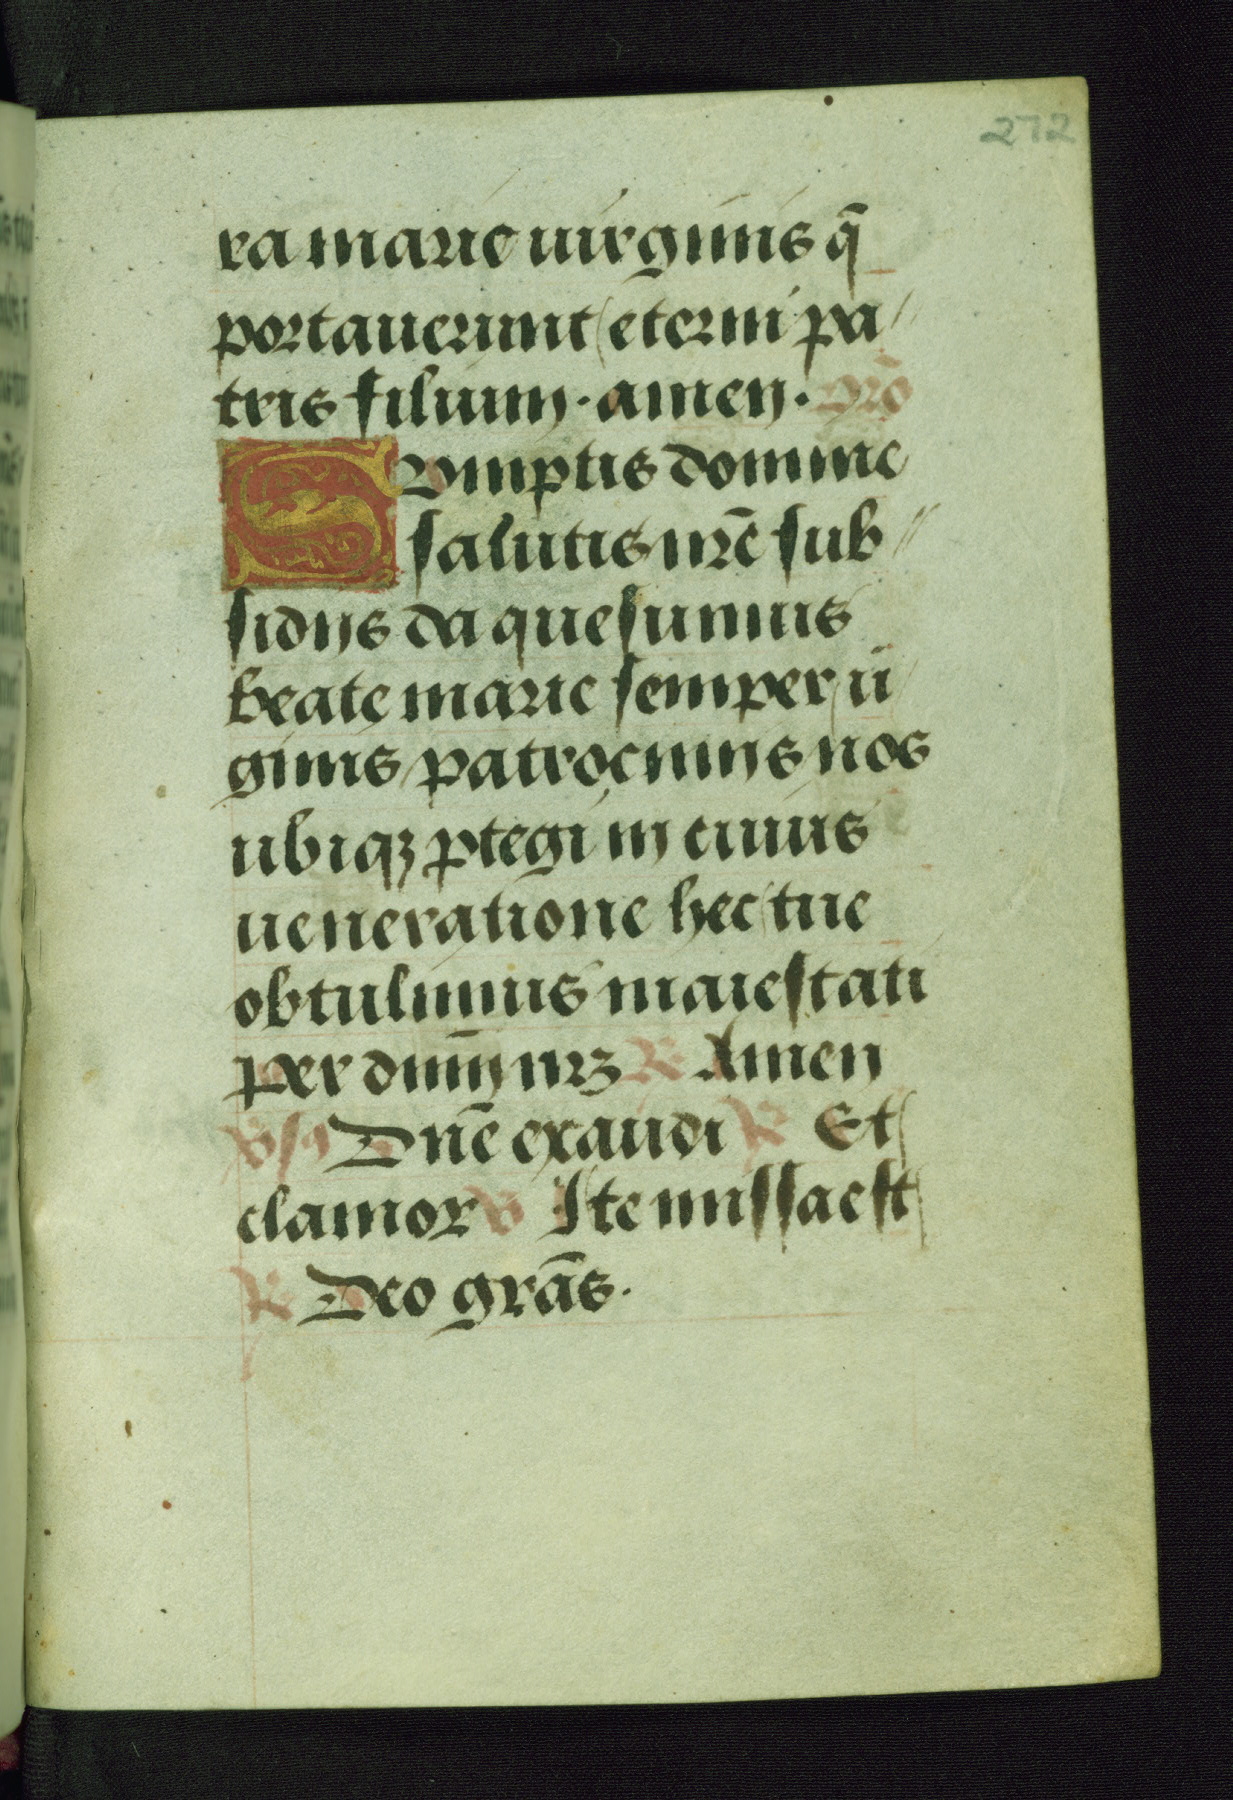 272
ra marie virginis q̄
portaverunt eterni pa
tris filium · amen · Oro
Sumptis domine
salutis nr̄e sub
sidiis da quesumus
beate marie semper vi
ginis patrociniis nos
ubiqꝫ ꝓtegi in cuius
veneratione hec tue
obtulimus maiestati
per dn̄m nrꝫ ℟ Amen
℣ Dn̄e exaudi ℟ Et
clamor ℣ Ite missa est
℟ Deo grās.